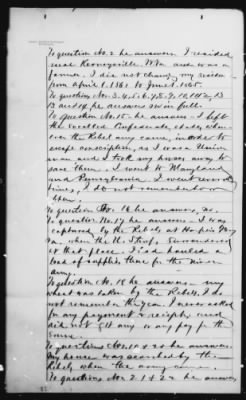 To question No. 2 he answers I resided
near Kearneysville W.Va and was a
farmer. I did not change my residence
from april 1. 1861 to June 1. 1865.
To questions Nos. 3, 4, 5, 6, 7, 8, 9, 10, 11, 12, 13
and 14 he answers no in full.
To question No. 15 he answers - I left
the so called Confederate states, when
ever the Rebel army came, in order to
escape conscription, as I was a Union
man and I took my horses away to
save them. I went to Maryland
and Pennsylvania. I went several
times, I do not remember how
To question No. 16 he answers, no,
To question No. 17 he answers - I was
captured by the Rebels at Harpers Ferry
Va. when the U.S. troops surrendered
at that place. I had hauled a
load of supplies there for the Union
army.
To question No. 18 he answers - my
wheat was taken by the Rebels, I do
not remember the year. I never asked
for any payment or receipt, and
did not get any or any pay for the
same.
To questions he answers
My house was searched by the
Rebels when the army came.
To questions Nos. 21 & 22 he answers